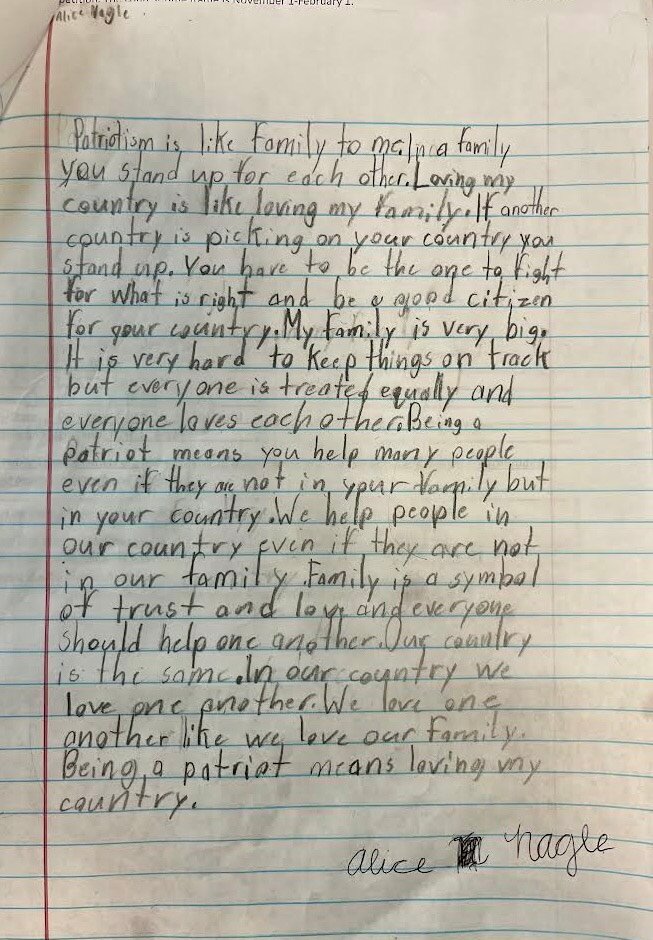 petition. The          frame is November 1-February 1.
Alice Nagle
Patriotism is like family to me. In a family
you stand up for each other. Loving my
country is like loving my family. If another
country is picking on your country you
stand up. You have to be the one to fight
for what is right and be a good citizen
for your country. My family is very big.
It is very hard to keep things on track
but everyone is treated equally and
everyone loves each other. Being a
patriot means you help many people
even if they are not in your family but
in your country. We help people in
our country even if they are not
in our family. Family is a symbol
of trust and love and everyone
should help one another. Our country
is the same. In our country we
love one another. We love one
another like we love our family.
Being a patriot means loving my
country.
Alice Nagle